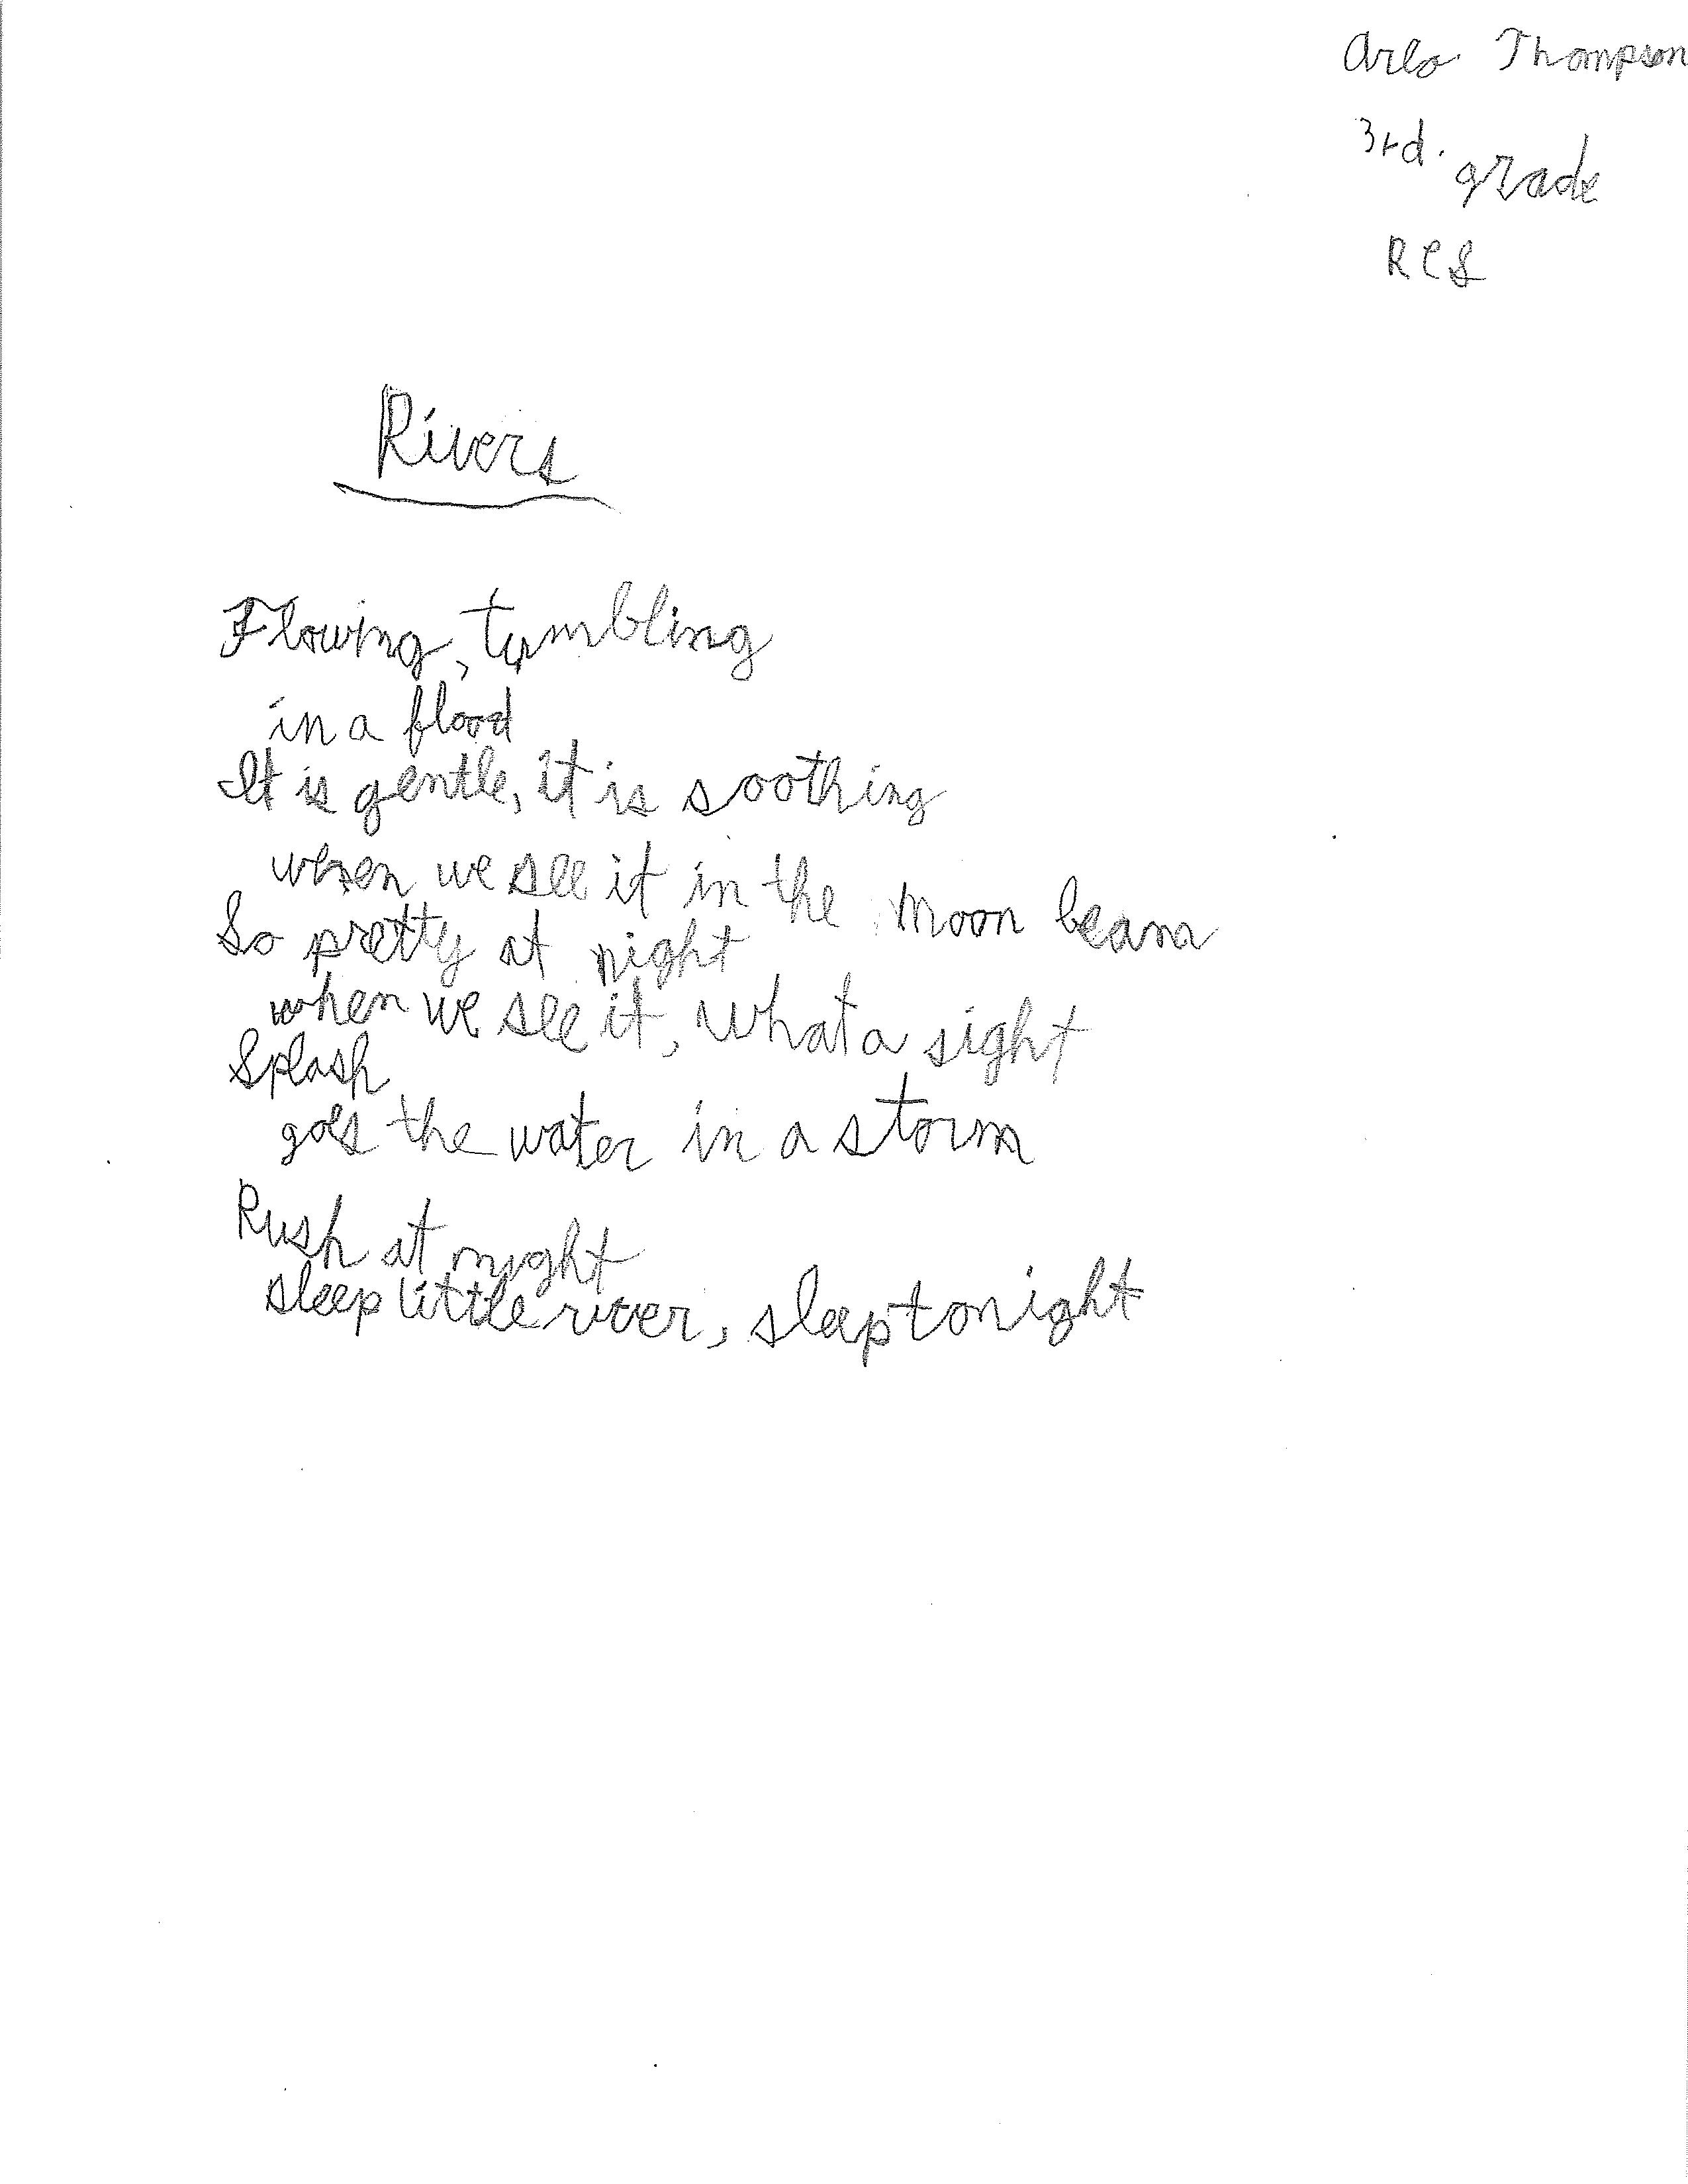 Arlo Thompson
3rd. grade
RCS
Rivers
Flowing, tumbling
in a flood
It is gentle, it is soothing
when we see it in the moon beam
So pretty at night
when we see it, what a sight
Splash
goes the water in a storm
Rush at night
sleep little river, sleep tonight